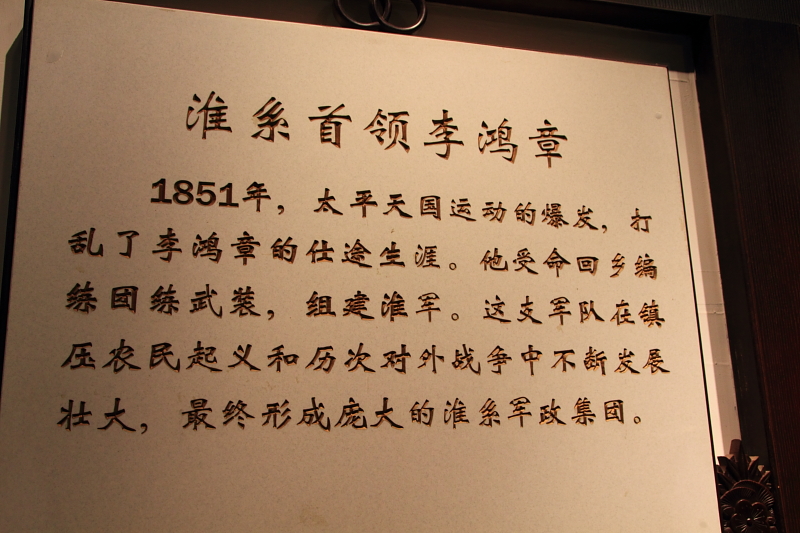 淮系首领李鸿章
1851年，太平天国运动的爆发，打
乱了李鸿章的仕途生涯。他受命回乡编
练团练武装，组建淮军。这支军队在镇
压农民起义和历次对外战争中不断发展
壮大，最终形成庞大的淮系军政集团。